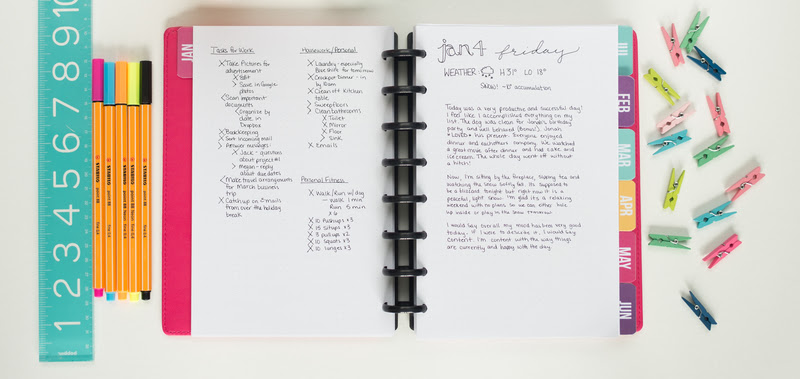 JAN
Tasks for Work
X Take Pictures for
advertisement
X Edit
> Save in Google
photos
< Scan important
documents
< Organize by
date in
Dropbox
X Backkeeping
X Sort incoming mail
> Answer messages
> Jack - questions
about project #1
> megan - reply
about due dates
< Make travel arrangements
for March business
trip
X Catch up on emails
from over the holiday
break
Homework/Personal
X Laundry - especially
Blue shirt for tomorrow
X Crockpot Dinner - in
by 9am
X Clean off Kitchen
table
> Sweep floors
> Clean bathrooms
X Toilet
X Mirror
X Floor
> Sink
X Emails
Personal Fitness
X Walk/Run w/ dog
- Walk 1 min
Run 5 min
x 6
X 10 Pushups x3
X 15 Situps x3
X 8 pullups x2
X 10 Squats x3
X 10 lunges x3
jan 4 friday
WEATHER H 31° LO 18°
Snow! ~8" accumulation
Today was a very productive and successful day!
I feel like I accomplished everything on my
list. The dog was clean for Jonah's birthday
party and well behaved (bonus!). Jonah
*LOVED* his present. Everyone enjoyed
dinner and eachothers company. We watched
a great movie after dinner and had cake and
ice cream. The whole day went off without
a hitch!
Now, I'm sitting by the fireplace, sipping tea and
watching the snow softly fall. It's supposed to
be a blizzard tonight but right now it is a
peaceful, light snow. I'm glad it's a relaxing
weekend with no plans. So we can either hole
up inside or play in the snow tomorrow
I would say overall my mood has been very good
today. If I were to describe it, I would say
content. I'm content with the way things
are currently and happy with the day.
FEB
MAR
APR
MAY
JUN
1 2 3 4 5 6 7 8 9 10
STABILO point 88
STABILO point 88
STABILO point 88
STABILO point 88
STABILO point 88